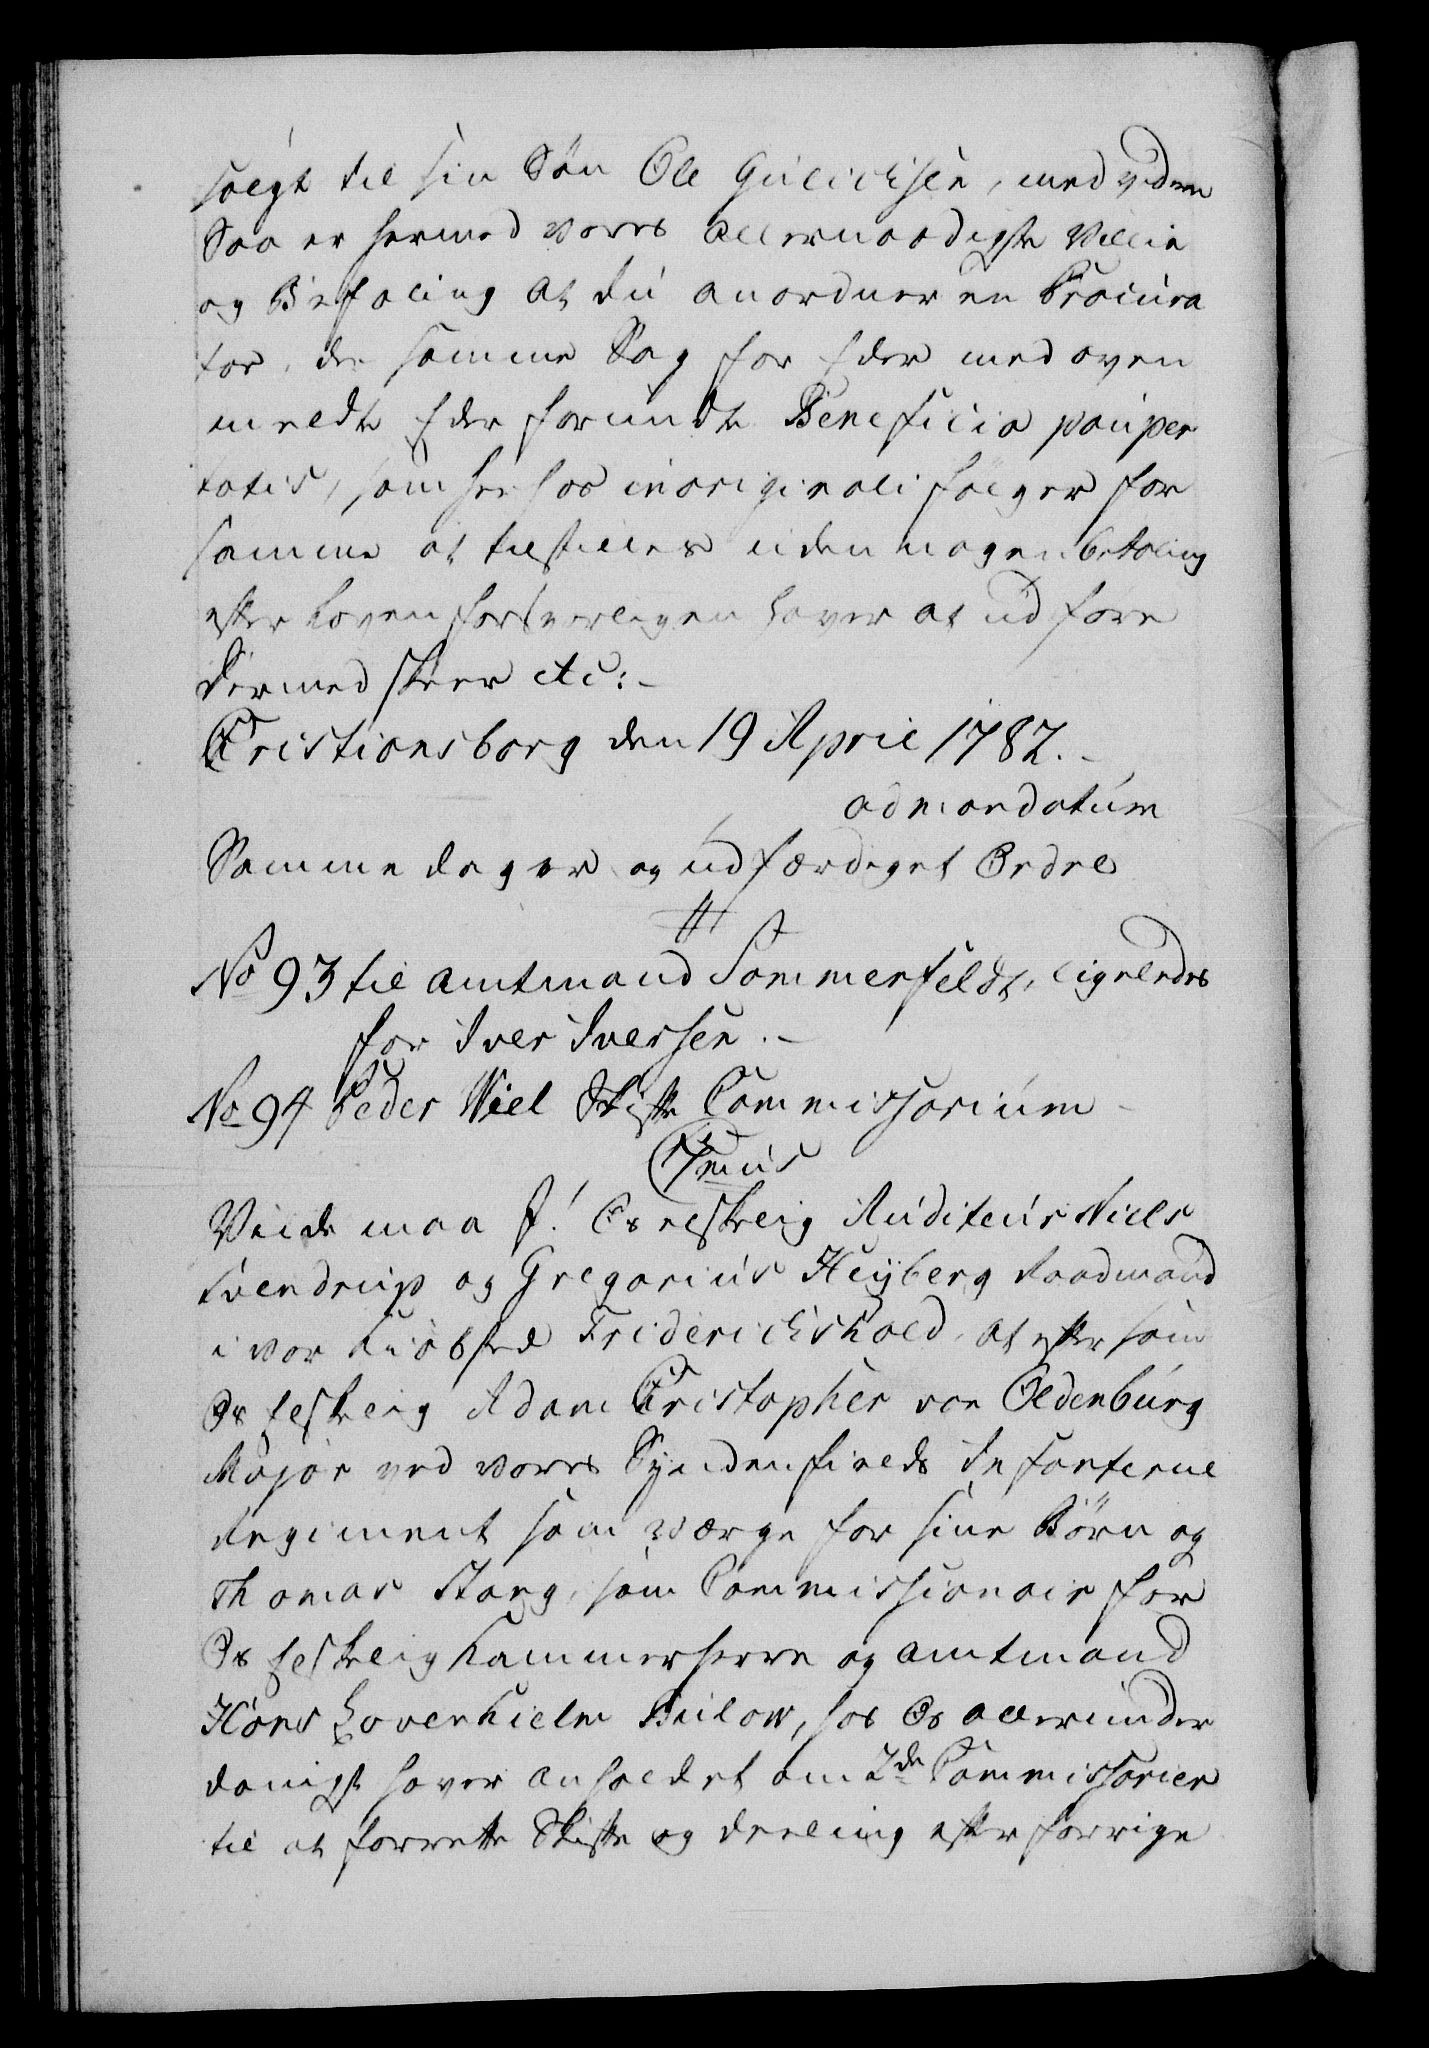 solgt til sin Søn Ole Gulichsen, med viidere
Saa er hermed vores allernaadigste Villie
og Befaling at du anordner en Procura
tor, der samme Sag for Eder med oven
meldte Eder forundte Beneficio pauper
tatis, som her hos in originali følger for
samme at tilstilles uden nogen betaling
efter Loven forsvarligen haver at udføre
Dermed skeer etc:
Christiansborg den 19 April 1782.
ad mandatum
Samme dag er og udfærdiget Ordre
No 93 til Amtmand Sommerfeldt, ligeledes
for Iver Iversen.
No 94 Peder Wiel Skifte Commissorium
Vi ide maa f! Os elskelig Auditeur Niels
Tvendrup og Gregorius Heyberg Raadmand
i vor Kiøbsted Friderichshald, at efter som
Os elskelig Adam Christopher von Oldenburg
Major ved vores Syndenfields Infanterie
Regiment som Værge for sine Børn og
Thomas Stang, som Commissionair for
Os elskelig Kammerherre og Amtmand
Hans Lovenhielm Bulow, hos Os allerunder
danigst haver anholdet om 2de Commissarier
til at forrette Skifte og deeling efter forrige